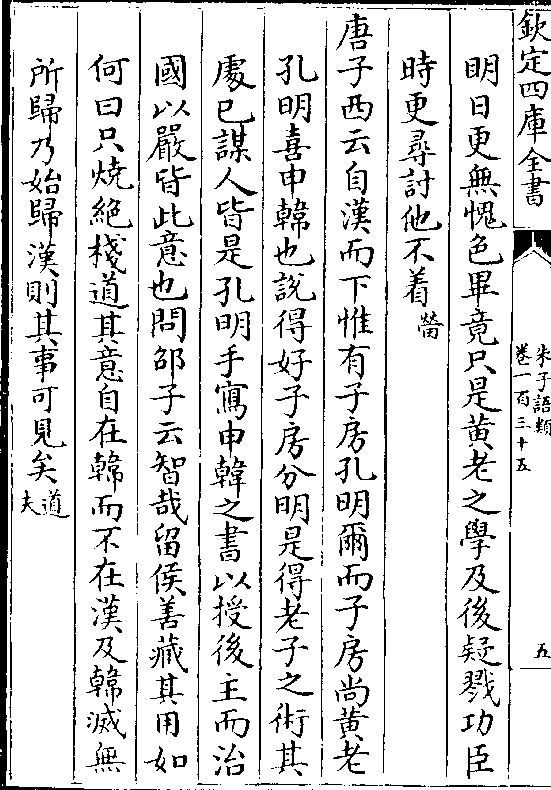 欽定四庫全書
朱子語類
卷一百三十五
五
明日更無愧色畢竟只是黄老之學及後疑戮功臣
時更尋討他不着㽦
唐子西云自漢而下惟有子房孔明爾而子房尚黄老
孔明喜申韓也說得好子房分明是得老子之術其
處已謀人皆是孔明手寫申韓之書以授後主而治
國以嚴皆此意也問邵子云智哉留侯善藏其用如
何曰只燒絶棧道其意自在韓而不在漢及韓滅無
所歸乃始歸漢則其事可見矣道夫